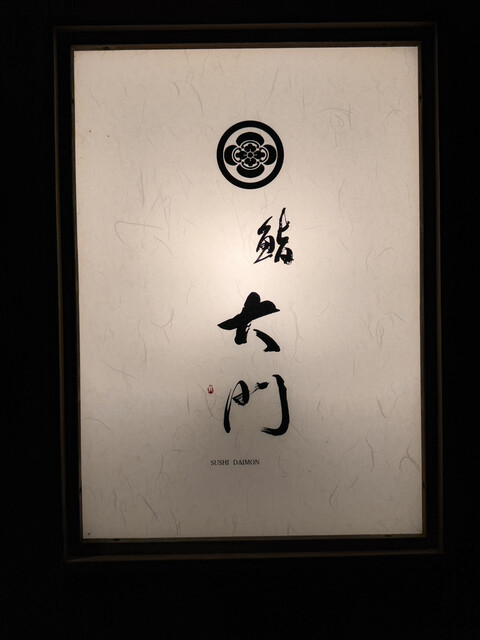 鮨
大門
SUSHI DAIMON